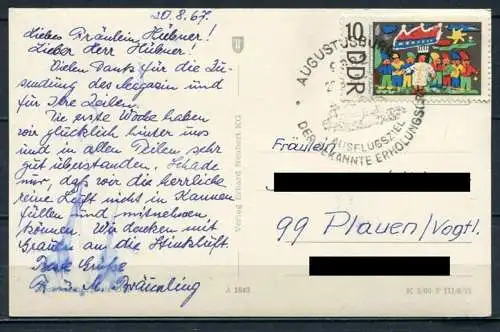 20.8.67.
Liebes Fräulein Hübner!
Lieber Herr Hübner!
Vielen Dank für die Zu-
sendung des Magasin und
für Ihre Zeilen.
Die erste Woche haben
wir glücklich hinter uns
und in allen Teilen sehr
gut überstanden. Schade
nur, daß wir die herrliche
reine Luft nicht in Kannen
füllen und mitnehmen
können. Wir denken mit
Grauen an die Stinkluft.
Beste Grüße
u. M. Bräunling
Verlag Erhard Neubert KG
A 1643
10
DDR
AUGUSTUSBURG
DER BEKANNTE ERHOLUNGSORT
AUSFLUGSZIEL
Fräulein
99 Plauen/Vogtl.